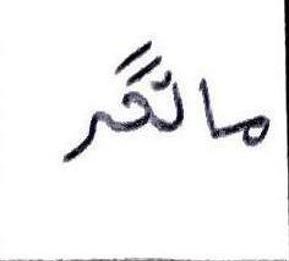 ماتگر